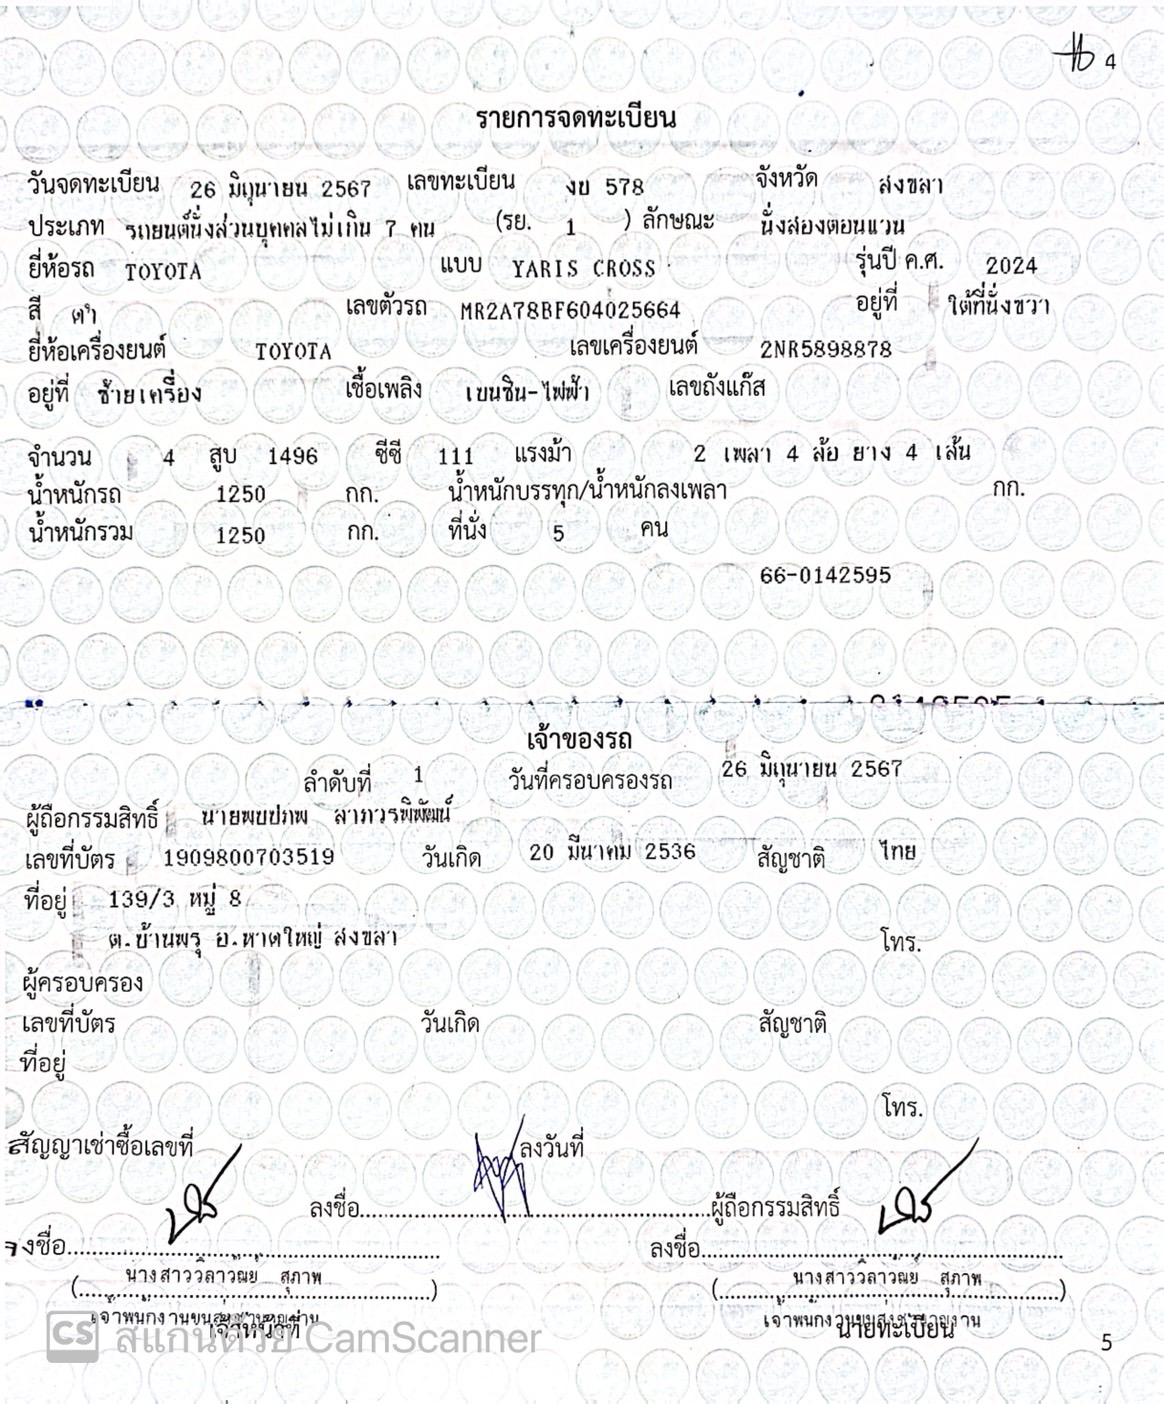 4
รายการจดทะเบียน
วันจดทะเบียน 26 มิถุนายน 2567 เลขทะเบียน งย 578 จังหวัด สงขลา
ประเภท รถยนต์นั่งส่วนบุคคลไม่เกิน 7 คน (รย. 1 ) ลักษณะ นั่งสองตอนแวน
ยี่ห้อรถ TOYOTA แบบ YARIS CROSS รุ่นปี ค.ศ. 2024
สี ดำ เลขตัวรถ MR2A78BF604025664 อยู่ที่ ใต้ที่นั่งขวา
ยี่ห้อเครื่องยนต์ TOYOTA เลขเครื่องยนต์ 2NR5898878
อยู่ที่ ซ้ายเครื่อง เชื้อเพลิง เบนซิน-ไฟฟ้า เลขถังแก๊ส
จำนวน 4 สูบ 1496 ซีซี 111 แรงม้า 2 เพลา 4 ล้อ ยาง 4 เส้น
น้ำหนักรถ 1250 กก. น้ำหนักบรรทุก/น้ำหนักลงเพลา กก.
น้ำหนักรวม 1250 กก. ที่นั่ง 5 คน
66-0142595
เจ้าของรถ
ลำดับที่ 1 วันที่ครอบครองรถ 26 มิถุนายน 2567
ผู้ถือกรรมสิทธิ์ นายพบปภพ ลาภวรพิพัฒน์
เลขที่บัตร 1909800703519 วันเกิด 20 มีนาคม 2536 สัญชาติ ไทย
ที่อยู่ 139/3 หมู่ 8
ต.บ้านพรุ อ.หาดใหญ่ สงขลา โทร.
ผู้ครอบครอง
เลขที่บัตร วันเกิด สัญชาติ
ที่อยู่
โทร.
สัญญาเช่าซื้อเลขที่ ลงวันที่
ลงชื่อ..........ผู้ถือกรรมสิทธิ์
ลงชื่อ.......... ลงชื่อ..........
(นางสาววิลาวณย์ สุภาพ) (นางสาววิลาวณย์ สุภาพ)
เจ้าพนักงานขนส่งชำนาญงาน เจ้าพนักงานขนส่งชำนาญงาน
เจ้าหน้าที่ นายทะเบียน
CS สแกนด้วย CamScanner
5